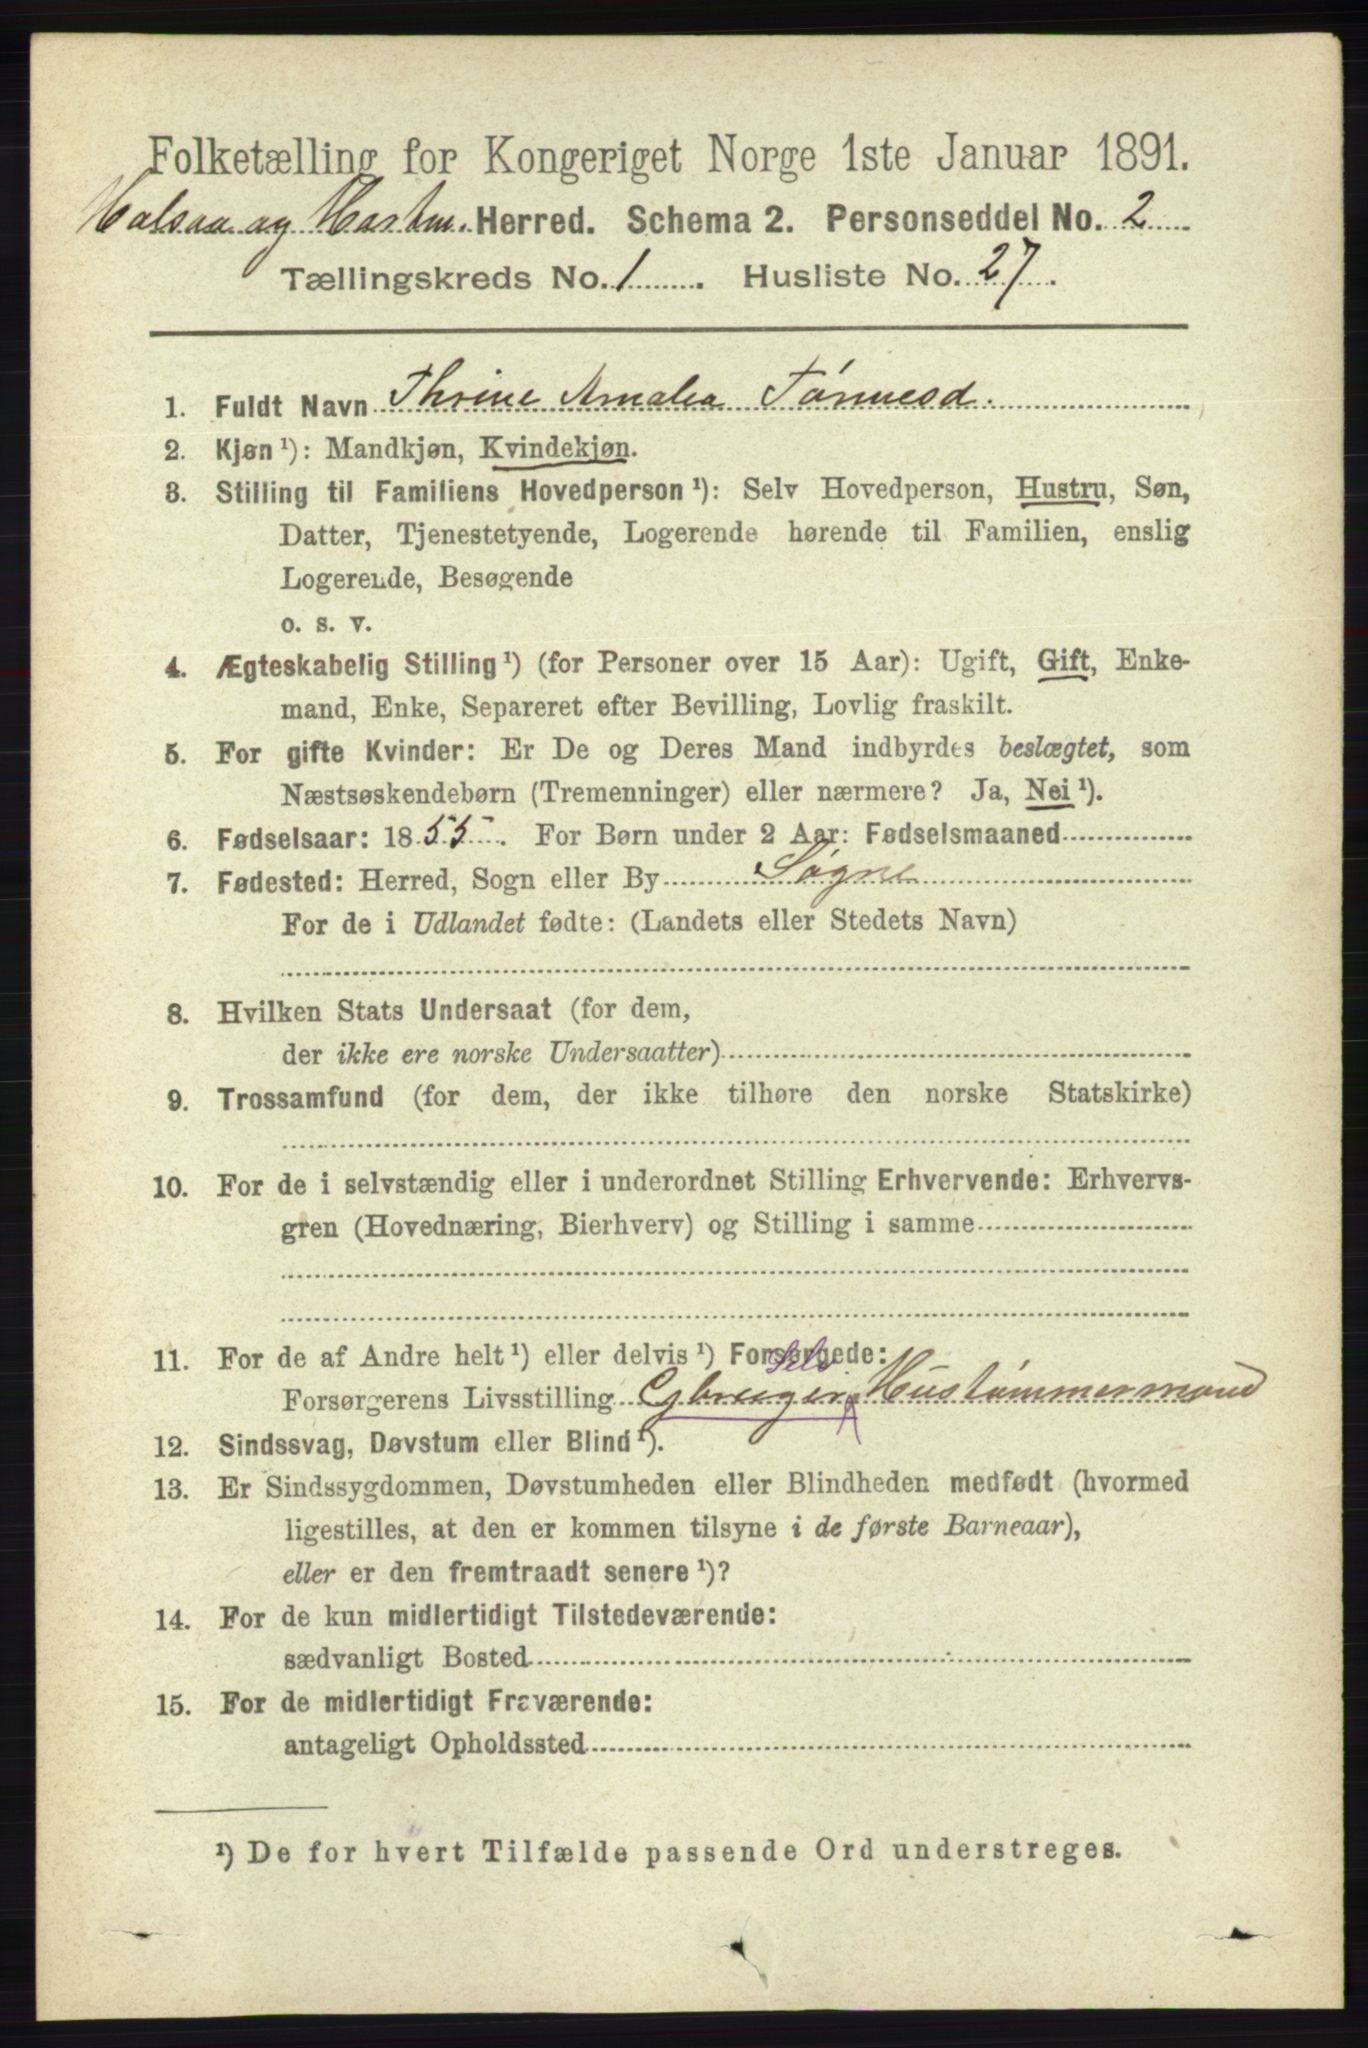 Folketælling for Kongeriget Norge 1ste Januar 1891.
Halsaa og Hartm. Herred. Schema 2. Personseddel No. 2
Tællingskreds No. 1 . Husliste No. 27 .
1. Fuldt Navn Thrine Amalea Tønnesd.
2. Kjøn ¹): Mandkjøn, Kvindekjøn.
3. Stilling til Familiens Hovedperson ¹): Selv Hovedperson, Hustru, Søn,
Datter, Tjenestetyende, Logerende hørende til Familien, enslig
Logerende, Besøgende
o. s. v.
4. Ægteskabelig Stilling ¹) (for Personer over 15 Aar): Ugift, Gift, Enke-
mand, Enke, Separeret efter Bevilling, Lovlig fraskilt.
5. For gifte Kvinder: Er De og Deres Mand indbyrdes beslægtet, som
Næstsøskendebørn (Tremenninger) eller nærmere? Ja, Nei ¹).
6. Fødselsaar: 1855 . For Børn under 2 Aar: Fødselsmaaned
7. Fødested: Herred, Sogn eller By Søgne
For de i Udlandet fødte: (Landets eller Stedets Navn)
8. Hvilken Stats Undersaat (for dem,
der ikke ere norske Undersaatter)
9. Trossamfund (for dem, der ikke tilhøre den norske Statskirke)
10. For de i selvstændig eller i underordnet Stilling Erhvervende: Erhvervs-
gren (Hovednæring, Bierhverv) og Stilling i samme
11. For de af Andre helt ¹) eller delvis ¹) Forsørgede:
Selv
Forsørgerens Livsstilling Gbruger Hustømmermand
12. Sindssvag, Døvstum eller Blind ¹).
13. Er Sindssygdommen, Døvstumheden eller Blindheden medfødt (hvormed
ligestilles, at den er kommen tilsyne i de første Barneaar),
eller er den fremtraadt senere ¹)?
14. For de kun midlertidigt Tilstedeværende:
sædvanligt Bosted
15. For de midlertidigt Fraværende:
antageligt Opholdssted
¹) De for hvert Tilfælde passende Ord understreges.